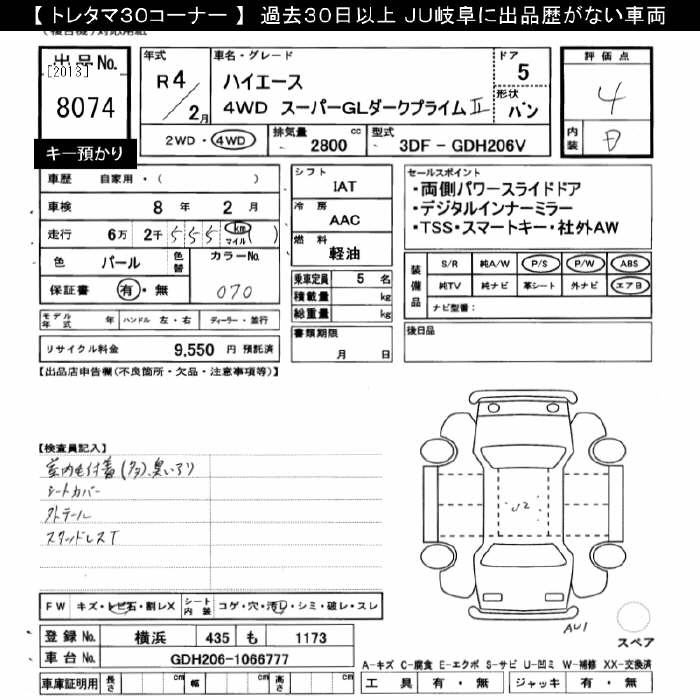 【 トレタマ30コーナー 】 過去30日以上 JU岐阜に出品歴がない車両
出品No.
[2013]
8074
キー預かり
年式
R4/2月
車名・グレード
ハイエース
4WD スーパーGLダークプライムⅡ
ドア
5
形状
バン
評価点
4
内装
2WD・4WD
排気量 2800 cc
型式 3DF-GDH206V
車歴 自家用・( )
車検 8年 2月
走行 6万 2千 555 km マイル )
色 パール 色替
カラーNo. 070
保証書 有・無
モデル年式 年 ハンドル 左・右 ディーラー・並行
リサイクル料金 9,550 円 預託済
シフト
IAT
冷房
AAC
燃料
軽油
乗車定員 5 名
積載量 kg
総重量 kg
書類期限
月 日
セールスポイント
・両側パワースライドドア
・デジタルインナーミラー
・TSS・スマートキー・社外AW
装備品
S/R 純A/W P/S P/W ABS
純TV 純ナビ 革シート 外ナビ エアB
ナビ型番:
後日品
【出品店申告欄(不良箇所・欠品・注意事項等)】
【検査員記入】
室内毛付着(多)、臭いアリ
シートカバー
外テール
スタッドレスT
U2
AU1
スペア
FW キズ・トビ石・割レX シート内装 コゲ・穴・汚レ・シミ・破レ・スレ
登録No. 横浜 435 も 1173
車台No. GDH206-1066777
車庫証明用 長さ cm 幅 cm 高さ cm
A-キズ C-腐食 E-エクボ S-サビ U-凹ミ W-補修 XX-交換済
工具 有・無 ジャッキ 有・無